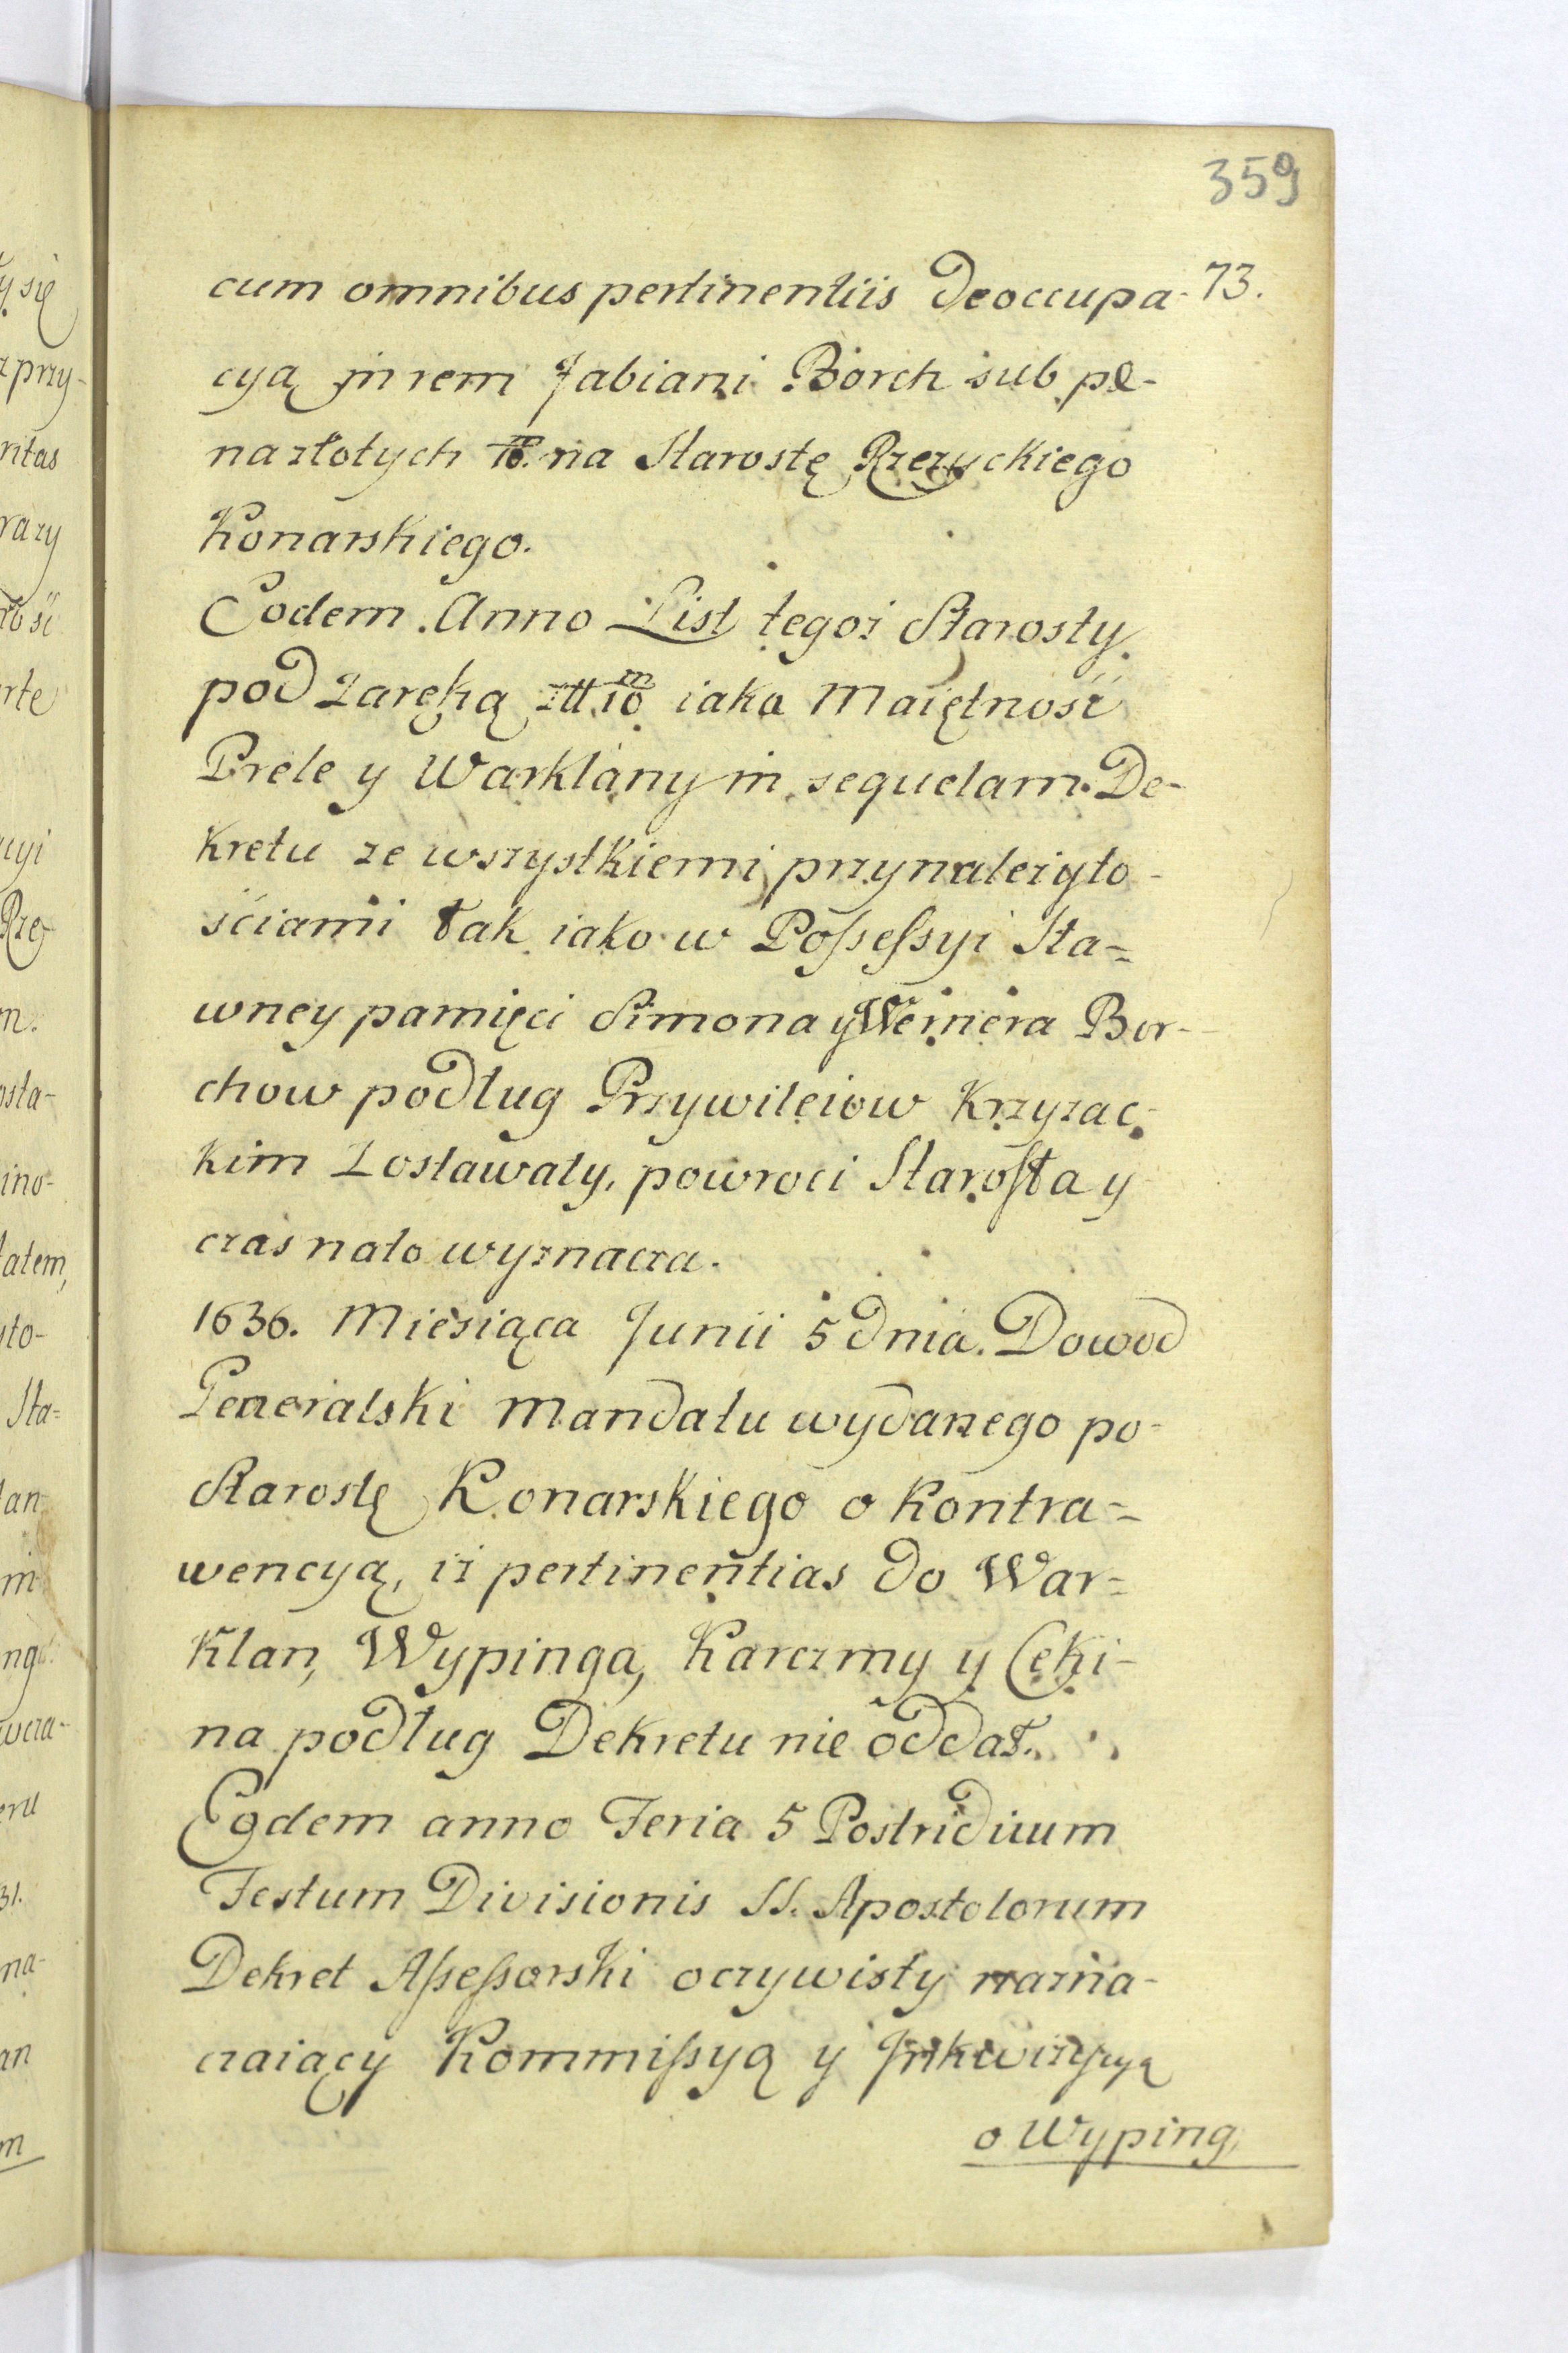 359
cum omnibus pertinentiis Deoccupa- 73.
cyą in rem Fabiani Borch sub pę-
na złotych 10.m na Starostę Rzeżyckiego
Konarskiego.
Eodem Anno List tegoż Starosty
pod zaręką złł 10m iako Maiętność
Prele y Warklany in sequelam De-
kretu ze wszystkiemi przynależyto-
ściami tak iako w Possessyi Sła=
wney pamięci Simona y Wernera Bor-
chow podług Przywileiow Krzyżac-
kim zostawały, powroci Starosta y
czas nato wyznacza.
1636. Miesiąca Junii 5 dnia. Dowod
Generalski Mandatu wydanego po
Starostę Konarskiego o kontra=
wencyą, iż pertinentias do War=
klan, Wypinga, Karczmy y Ceki-
na podług Dekretu nie oddał.
Eodem anno Feria 5 Postriduum
Festum Divisionis SS. Apostolorum
Dekret Assessorski oczywisty nazna-
czaiący Kommissyą y Inkwizycyą
o Wyping,
ty się
z przy-
ntas
razy
rte
uyi
Rze-
m.
osta-
ino-
tatem,
yto-
Sła=
tan
wcza-
eru
31.
na-
an
m